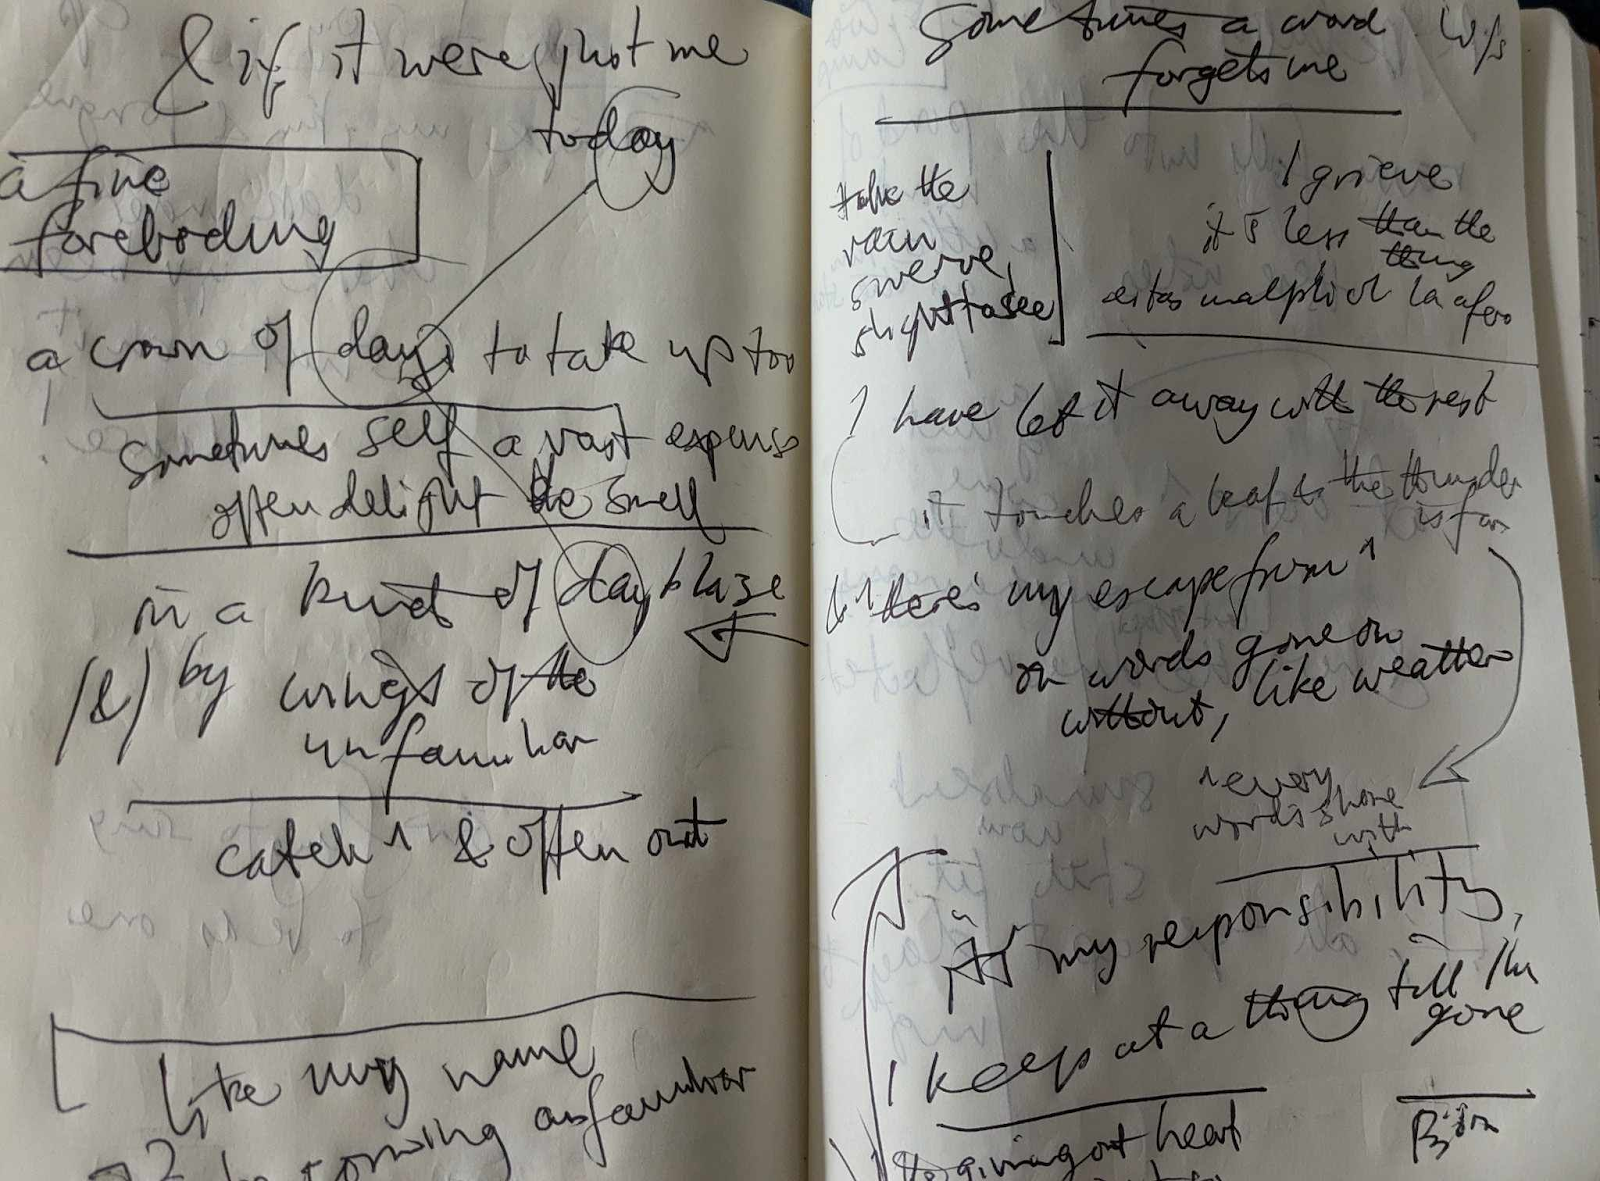 & if it were just me
today
a fine
foreboding
a crown of days to take up too
sometimes self a vast expense
often delight the smell
in a kind of day blaze
(&) by wings of the
unfamiliar
catch & often out
like my name
as familiar
Sometimes a word
forgets me
take the
rain
swerve,
I grieve
it's less than the
thing
I have let it away with the rest
it touches a leaf & the thunder
is far
there's my escape from
on words gone on
without, like weather
every
words shone
with
my responsibility,
I keep at a thing till I'm
gone
giving out heat